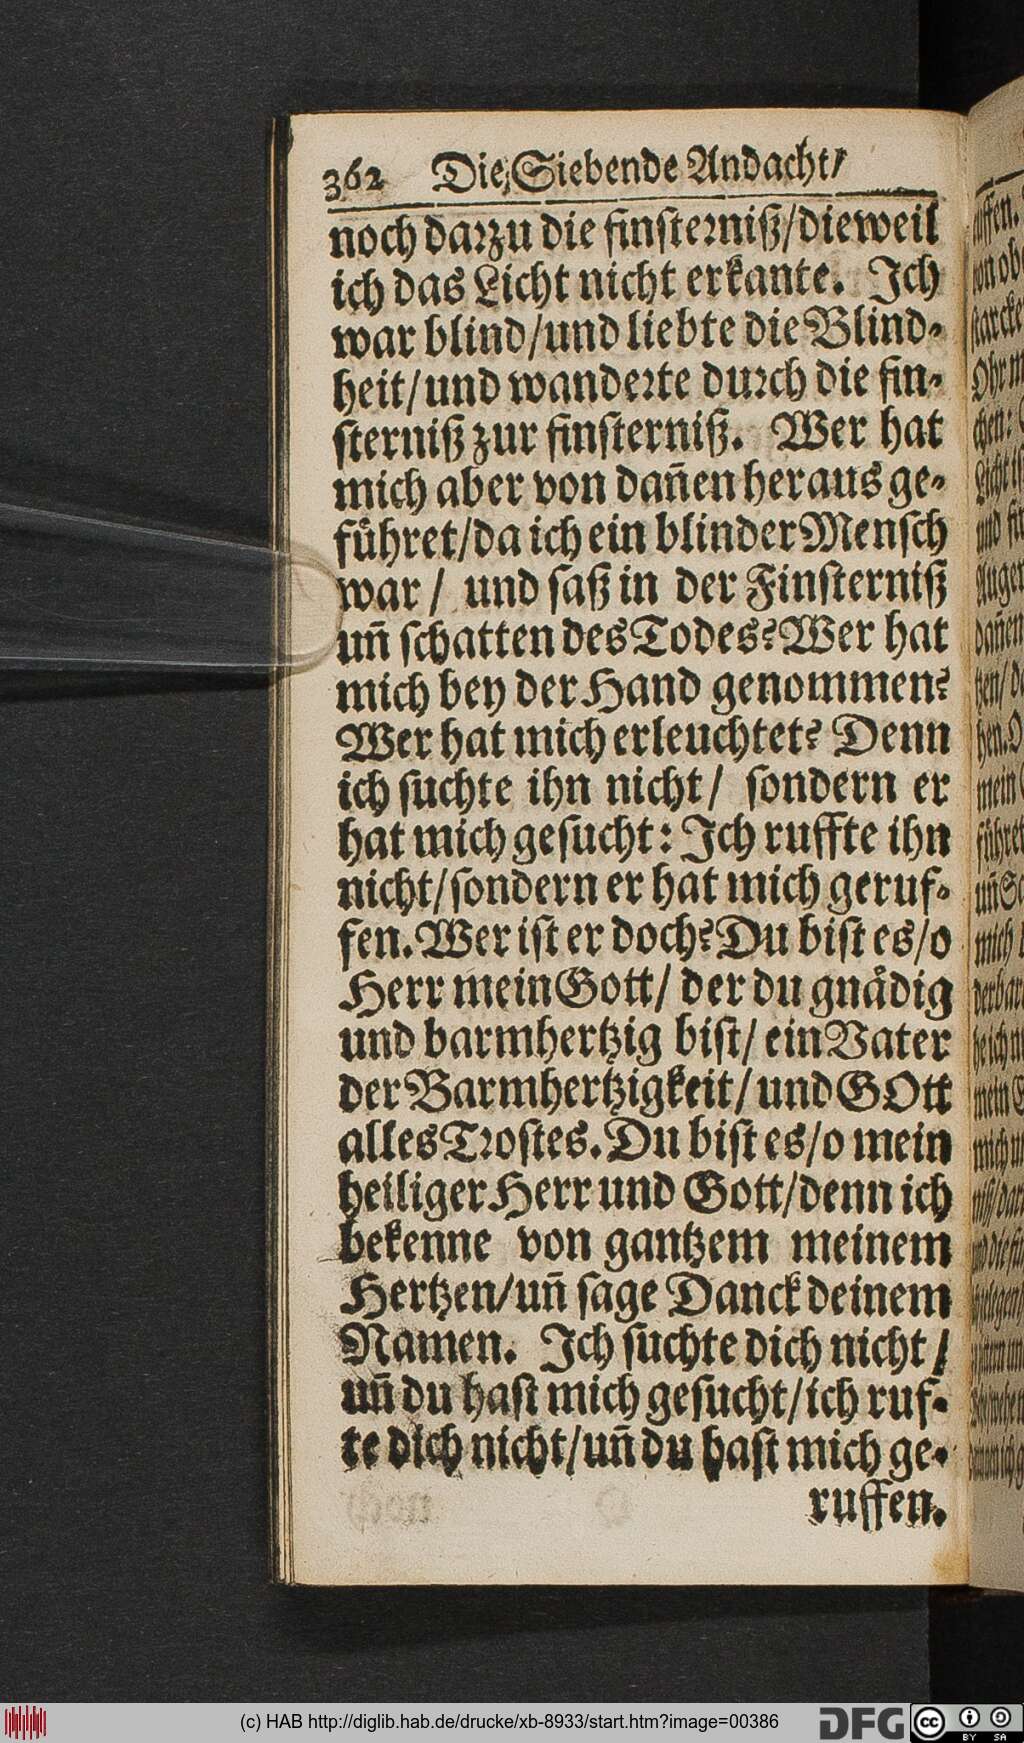 362 Die Siebende Andacht/
noch darzu die finsterniß/dieweil
ich das Licht nicht erkante. Ich
war blind/und liebte die Blind-
heit/und wanderte durch die fin-
sterniß zur finsterniß. Wer hat
mich aber von dañen heraus ge-
fuͤhret/da ich ein blinder Mensch
war/ und saß in der Finsterniß
uñ schatten des Todes? Wer hat
mich bey der Hand genommen?
Wer hat mich erleuchtet? Denn
ich suchte ihn nicht/ sondern er
hat mich gesucht: Ich ruffte ihn
nicht/sondern er hat mich geruf-
fen. Wer ist er doch? Du bist es/o
Herr mein Gott/ der du gnaͤdig
und barmhertzig bist/ ein Vater
der Barmhertzigkeit/ und GOtt
alles Trostes. Du bist es/o mein
heiliger Herr und Gott/denn ich
bekenne von gantzem meinem
Hertzen/uñ sage Danck deinem
Namen. Ich suchte dich nicht/
uñ du hast mich gesucht/ich ruf-
te dich nicht/uñ du hast mich ge-
ruffen.
(c) HAB http://diglib.hab.de/drucke/xb-8933/start.htm?image=00386
DFG
cc BY SA